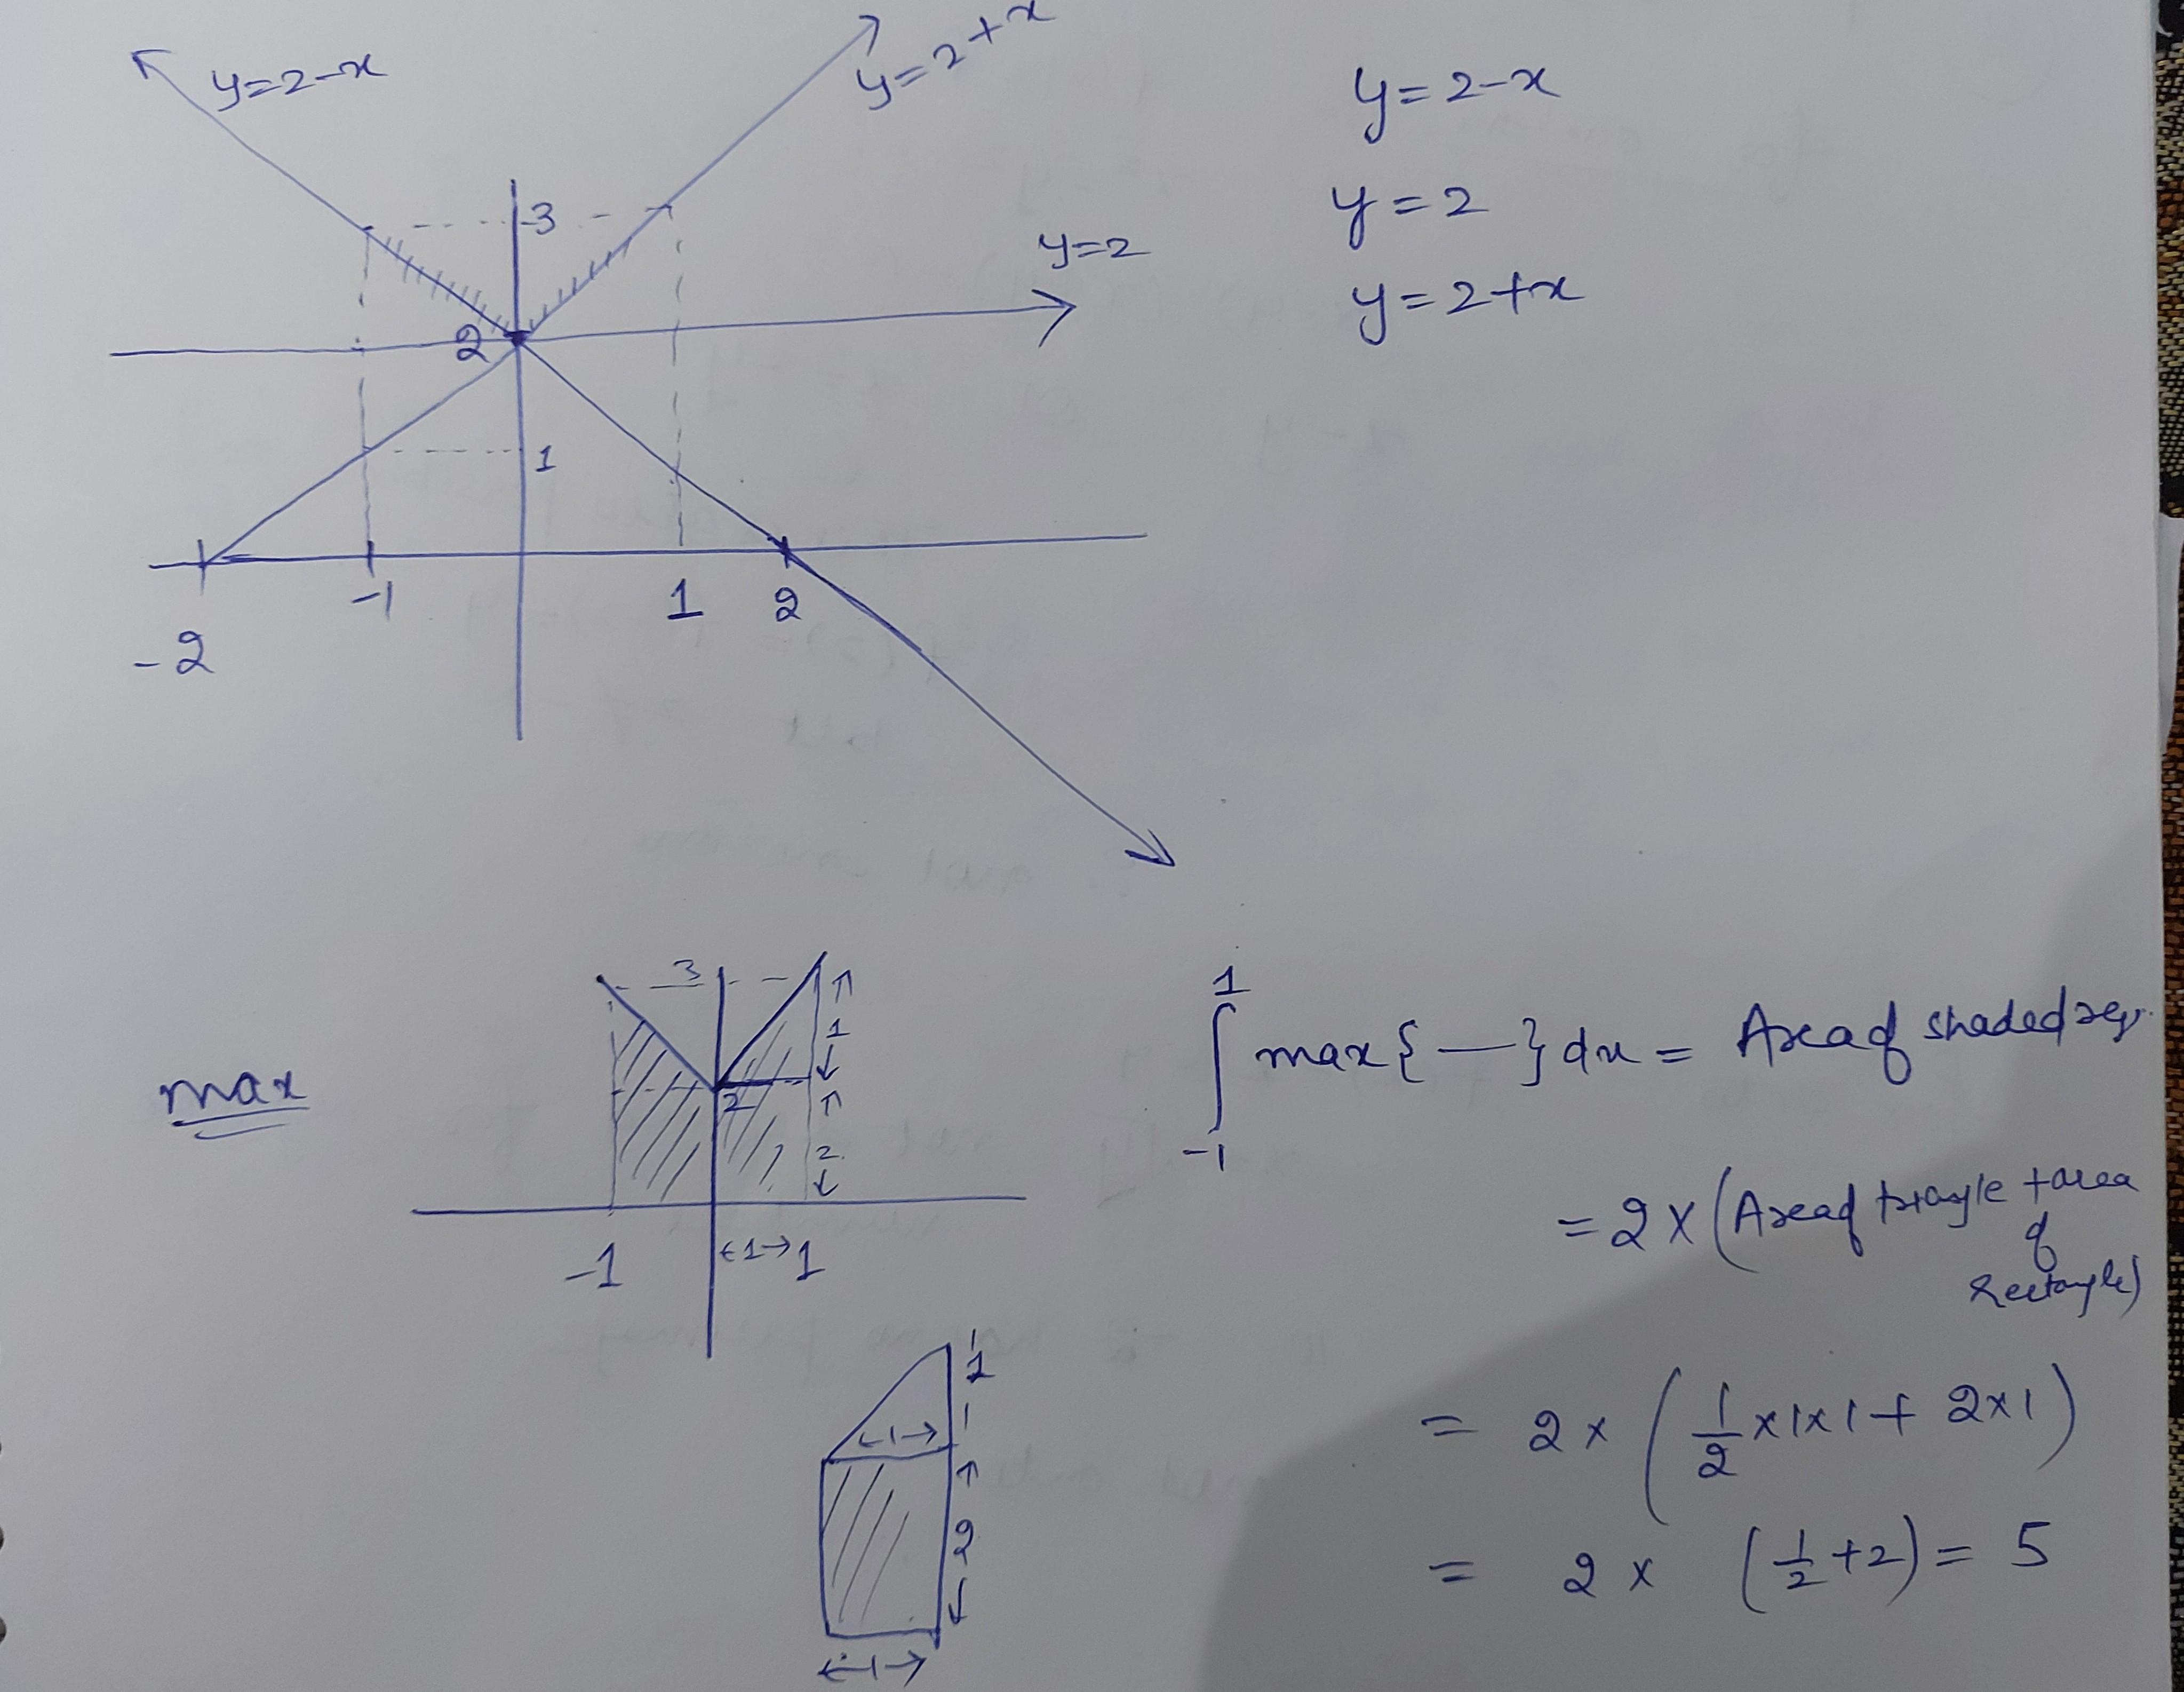 y=2-x
y=2+x
y=2-x
y=2
y=2+x
3
y=2
2
1
-1
1
2
-2
max
3
1
2
2
-1
←1→
1
∫_{-1}^{1} max{ — } dx = Area of shaded reg.
= 2 × (Area of triangle + area
of
rectangle)
1
←1→
2
←1→
= 2 × (1/2 ×1×1 + 2×1)
= 2 × (1/2 +2) = 5